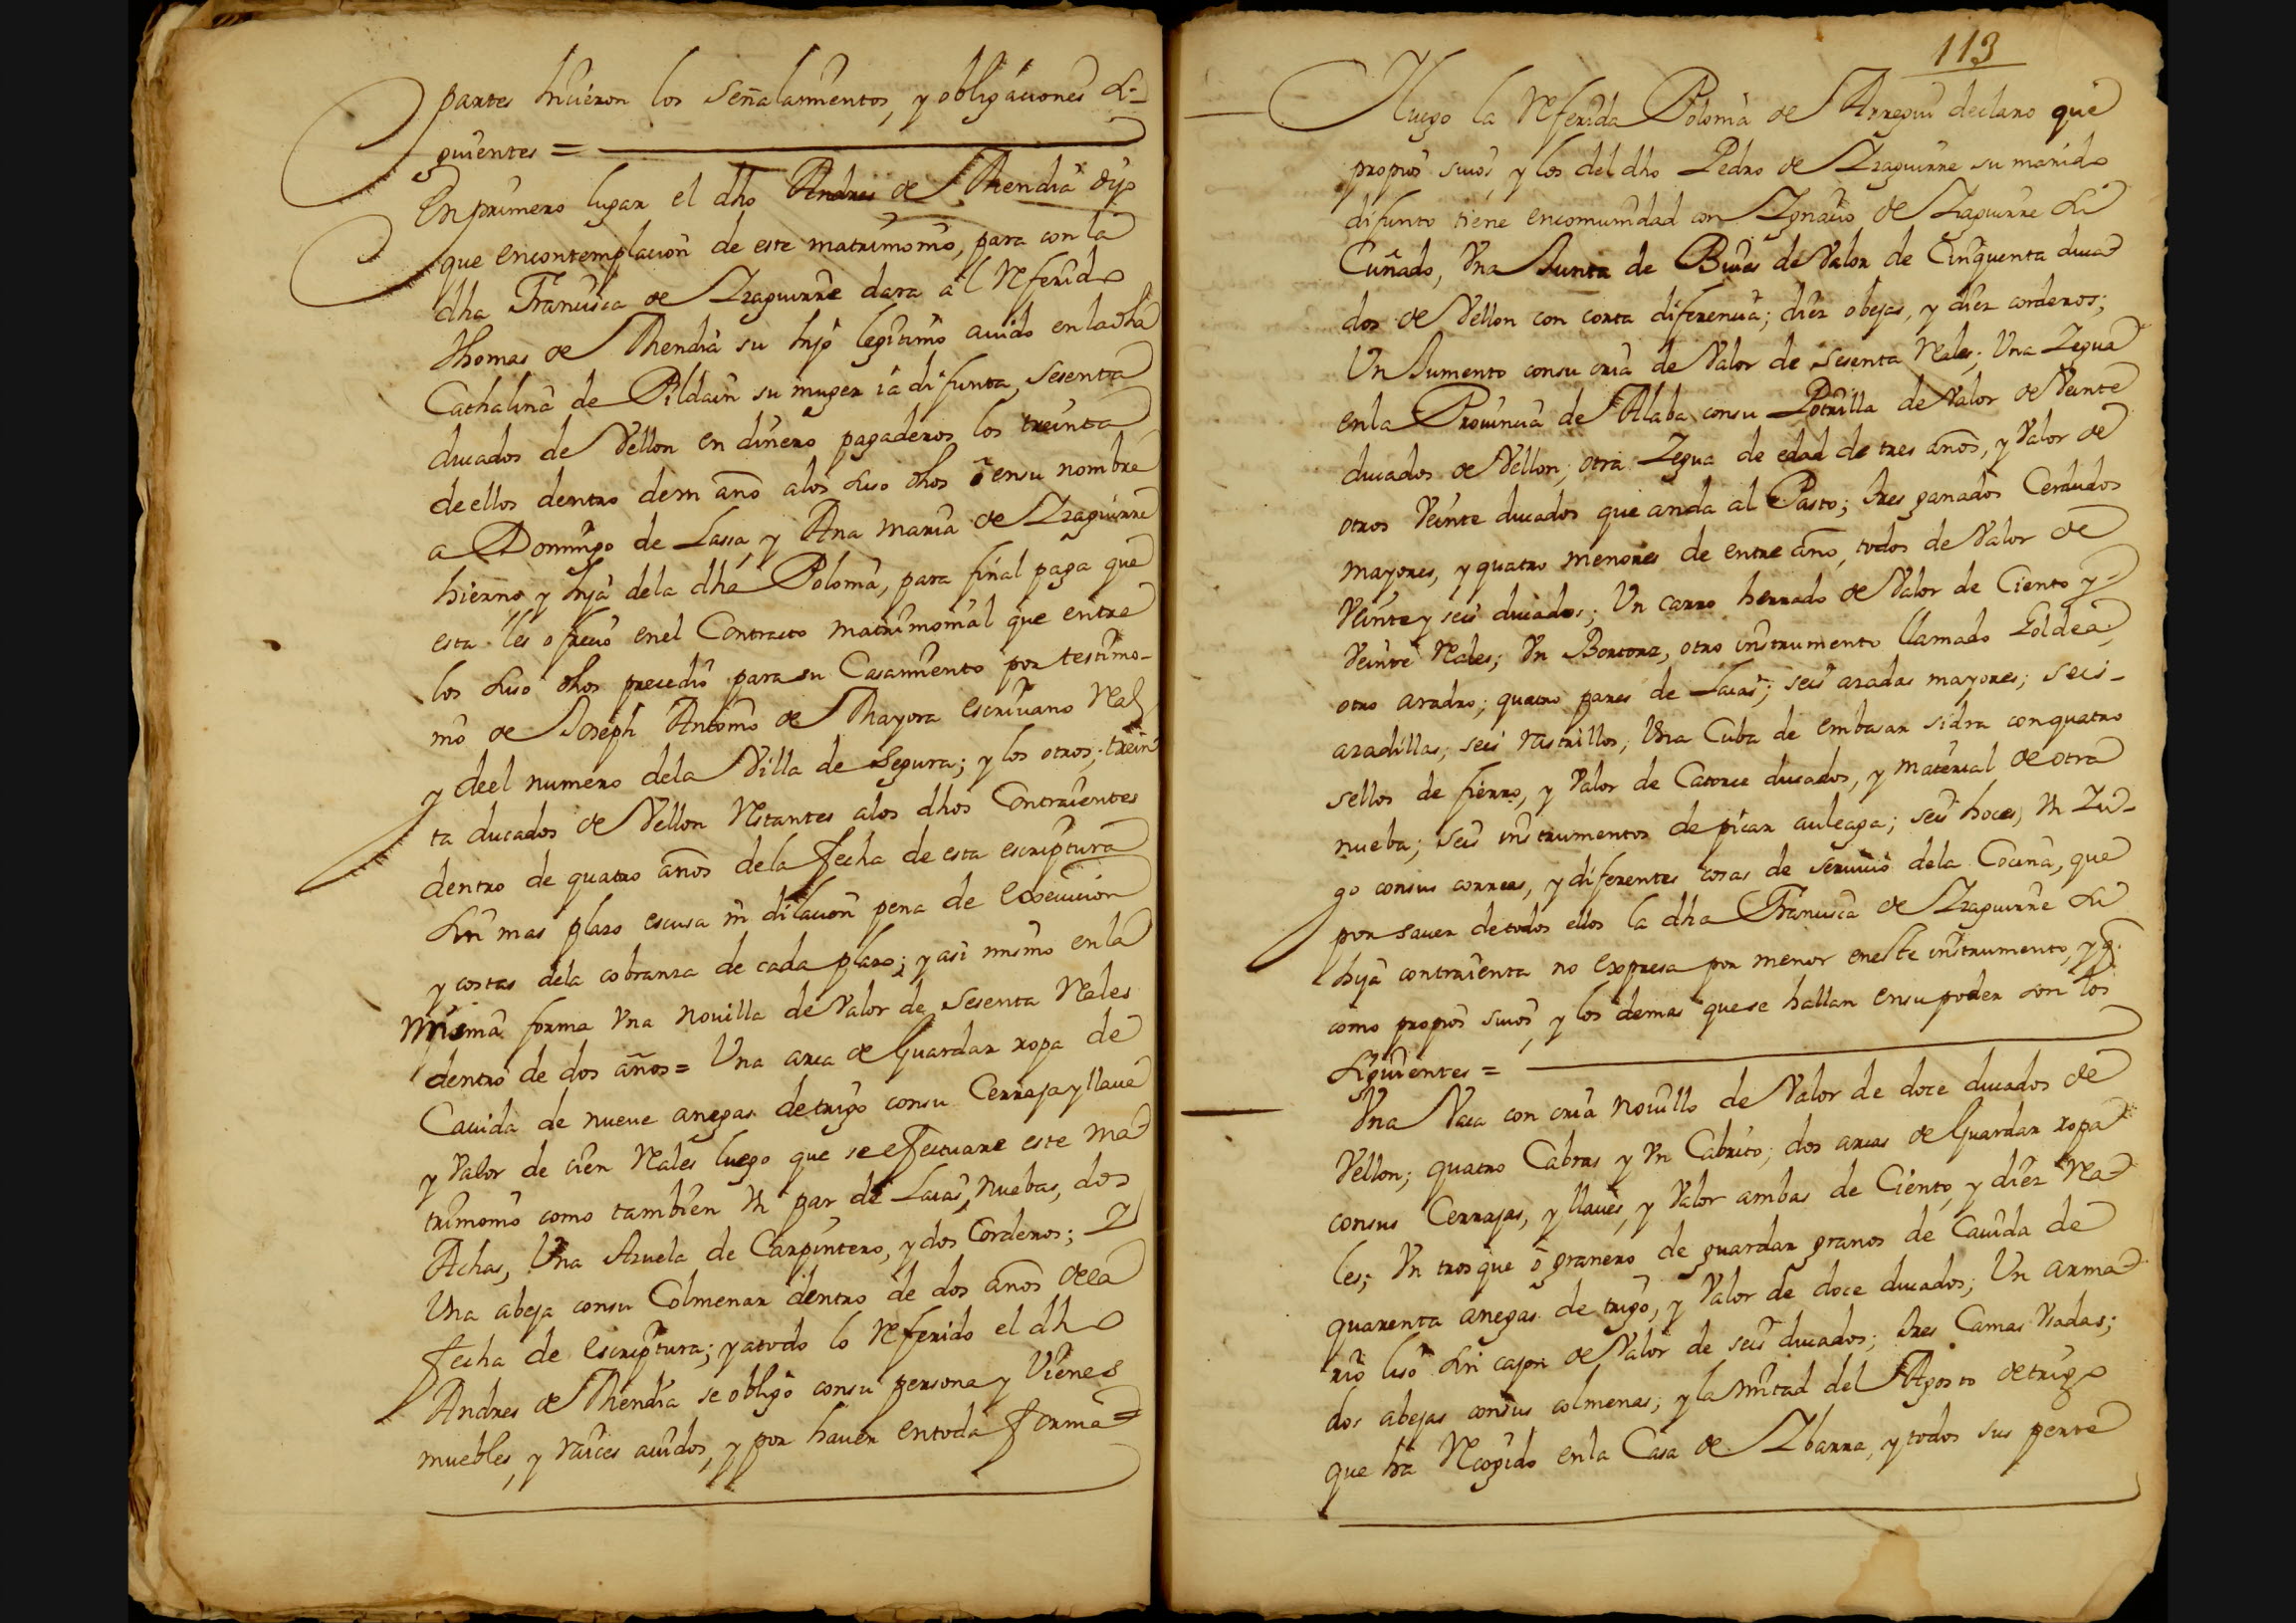 partes hicieron los señalamientos, y obligaciones si-
guientes =
En primero lugar el dho Andres de Mendia dijo
que encontemplacion de este matrimonio, para con la
dha Francisca de Yzaguirre dara ál referido
Thomas de Mendia su hijo legitimo auido en la dha
Cathalina de Pildain su muger iá difunta, Sesenta
ducados de Vellon en dinero pagaderos los treinta
de ellos dentro de un año alos suso dhos ó ensu nombre
a Domingo de Lassa, y Ana Maria de Yzaguirre
hierno y hija dela dha Polonia, para final paga que
esta les ofrecio enel Contracto matrimonial que entre
los suso dhos precedió para su Casamiento por testimo-
nio de Joseph Antonio de Mayora escriuano Real
y deel numero dela Villa de Segura; y los otros, trein
ta ducados de Vellon restantes alos dhos Contraientes
dentro de quatro años dela fecha de esta escriptura
sin mas plazo escusa ni dilacion pena de Execucion
y costas dela cobranza de cada plazo; y asi mismo en la
Misma forma Vna nouilla de Valor de Sesenta Reales
dentro de dos años = Una arca de Guardar ropa de
Cauida de nueue anegas de trigo consu Cerraja y llaue
y Valor de cien Reales luego que se efectuare este ma
trimonio como tambien Vn par de Laias, nuebas, dos
Achas, Una Azuela de Carpintero, y dos Corderos; Y
Una abeja consu Colmenar dentro de dos años dela
fecha de escriptura; y atodo lo Referido el dho
Andres de Mendia se obligó consu persona y Vienes
muebles, y raices auidos, y por hauer en toda forma =
113
Y luego la Referida Polonia de Arregui declaro que
propios suios, y los del dho Pedro de Yzaguirre su marido
difunto tiene encomunidad con Ygnacio de Yzaguirre su
Cuñado, Vna Junta de Bueies de Valor de Cinquenta duca
dos de Vellon con corta diferencia; diez obejas, y diez corderos;
Un Jumento consu cria de Valor de sesenta Reales; Una Yegua
enla Prouincia de Alaba consu Potrilla de Valor de Veinte
ducados de Vellon; otra Yegua de edad de tres años, y Valor de
otros Veinte ducados que anda al Pasto; tres ganados Cerdudos
mayores, y quatro menores de entre año, todos de Valor de
Veinte y seis ducados; Un carro herrado de Valor de Ciento y
Veinte Reales; Vn Bortorz, otro instrumento llamado Goldea;
otro arado; quatro pares de Laias; seis azadas mayores; seis
azadillas; seis rastrillos; Una Cuba de embasar sidra con quatro
sellos de fierro, y Valor de Catorce ducados, y material de otra
nueba; seis instrumentos de picar auleaga; seis hoces, Vn Yu-
go consus correas, y diferentes cosas de seruicio dela Cocina, que
por sauer de todos ellos la dha Francisca de Yzaguirre su
hija contraienta no expresa por menor eneste instrumento, y q.
como propios suios, y los demas que se hallan ensu poder son los
siguientes =
Vna Vaca con cria nouillo de Valor de doce ducados de
Vellon; quatro Cabras y Vn Cabrito; dos arcas de Guardar ropa
consus Cerrajas, y llaues, y Valor ambas de Ciento, y diez Rea
les; Vn trosque ó granero de guardar granos de Cauida de
quarenta anegas de trigo, y Valor de doce ducados; Un arma
rio liso sin cajon de Valor de seis ducados; tres Camas Vsadas;
dos abejas consus colmenas; y la mitad del Agosto de trigo
que ha Recogido enla Casa de Ybarra, y todos sus perte